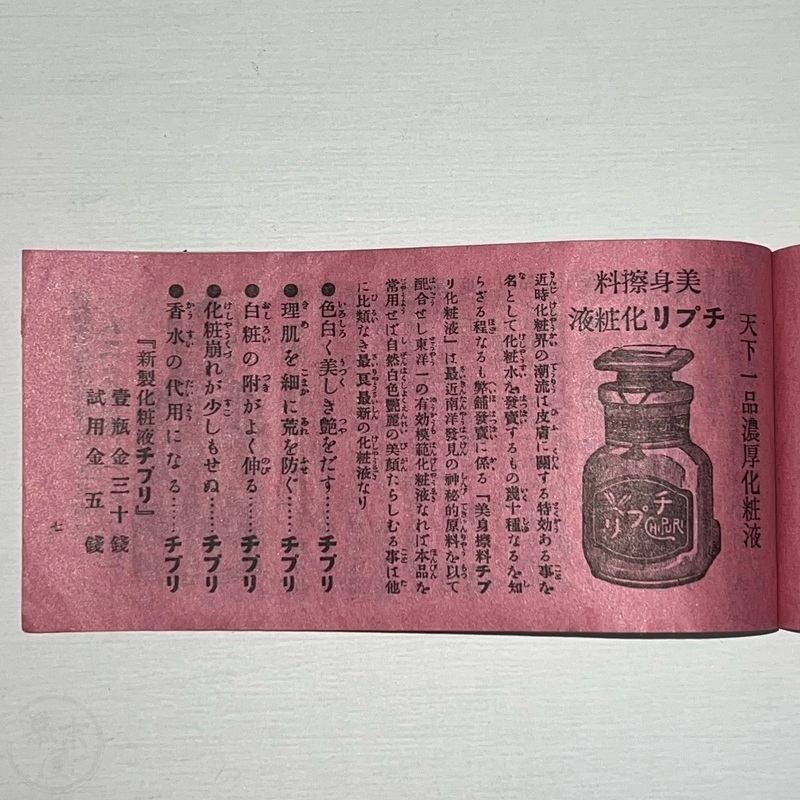 天下一品濃厚化粧液
美身擦料
チプリ化粧液
チプリ
CHIPURI
近時化粧界の潮流は皮膚に關する特効ある事を
名として化粧水を發賣するもの幾十種なるを知
らざる程なるも弊鋪發賣に係る『美身擦料チプ
リ化粧液』は最近南洋發見の神秘的原料を以て
配合せし東洋一の有効模範化粧液なれば本品を
常用せば自然白色艷麗の美顔たらしむる事は他
に比類なき最眞最新の化粧液なり
●色白く美しき艶をだす……チプリ
●理肌を細に荒を防ぐ……チプリ
●白粧の附がよく伸る……チプリ
●化粧崩れが少しもせぬ……チプリ
●香水の代用になる……チプリ
『新製化粧液チプリ』
壹瓶金三十錢
試用金五錢
七